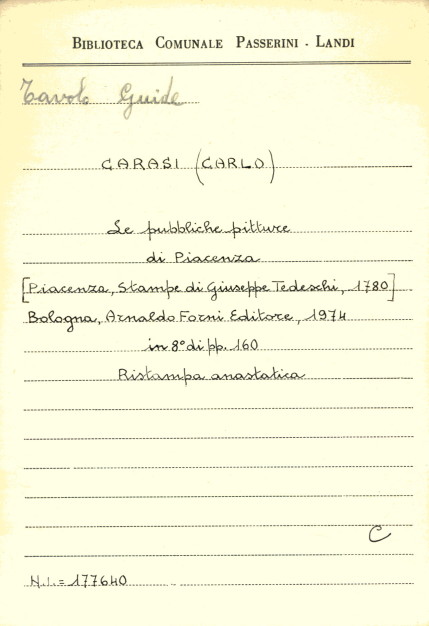 BIBLIOTECA COMUNALE PASSERINI - LANDI
Tavolo Guide
CARASI (CARLO)
Le pubbliche pitture
di Piacenza
[Piacenza, Stampe di Giuseppe Tedeschi, 1780]
Bologna, Arnaldo Forni Editore, 1974
in 8° di pp. 160
Ristampa anastatica
C
N.I.= 177640